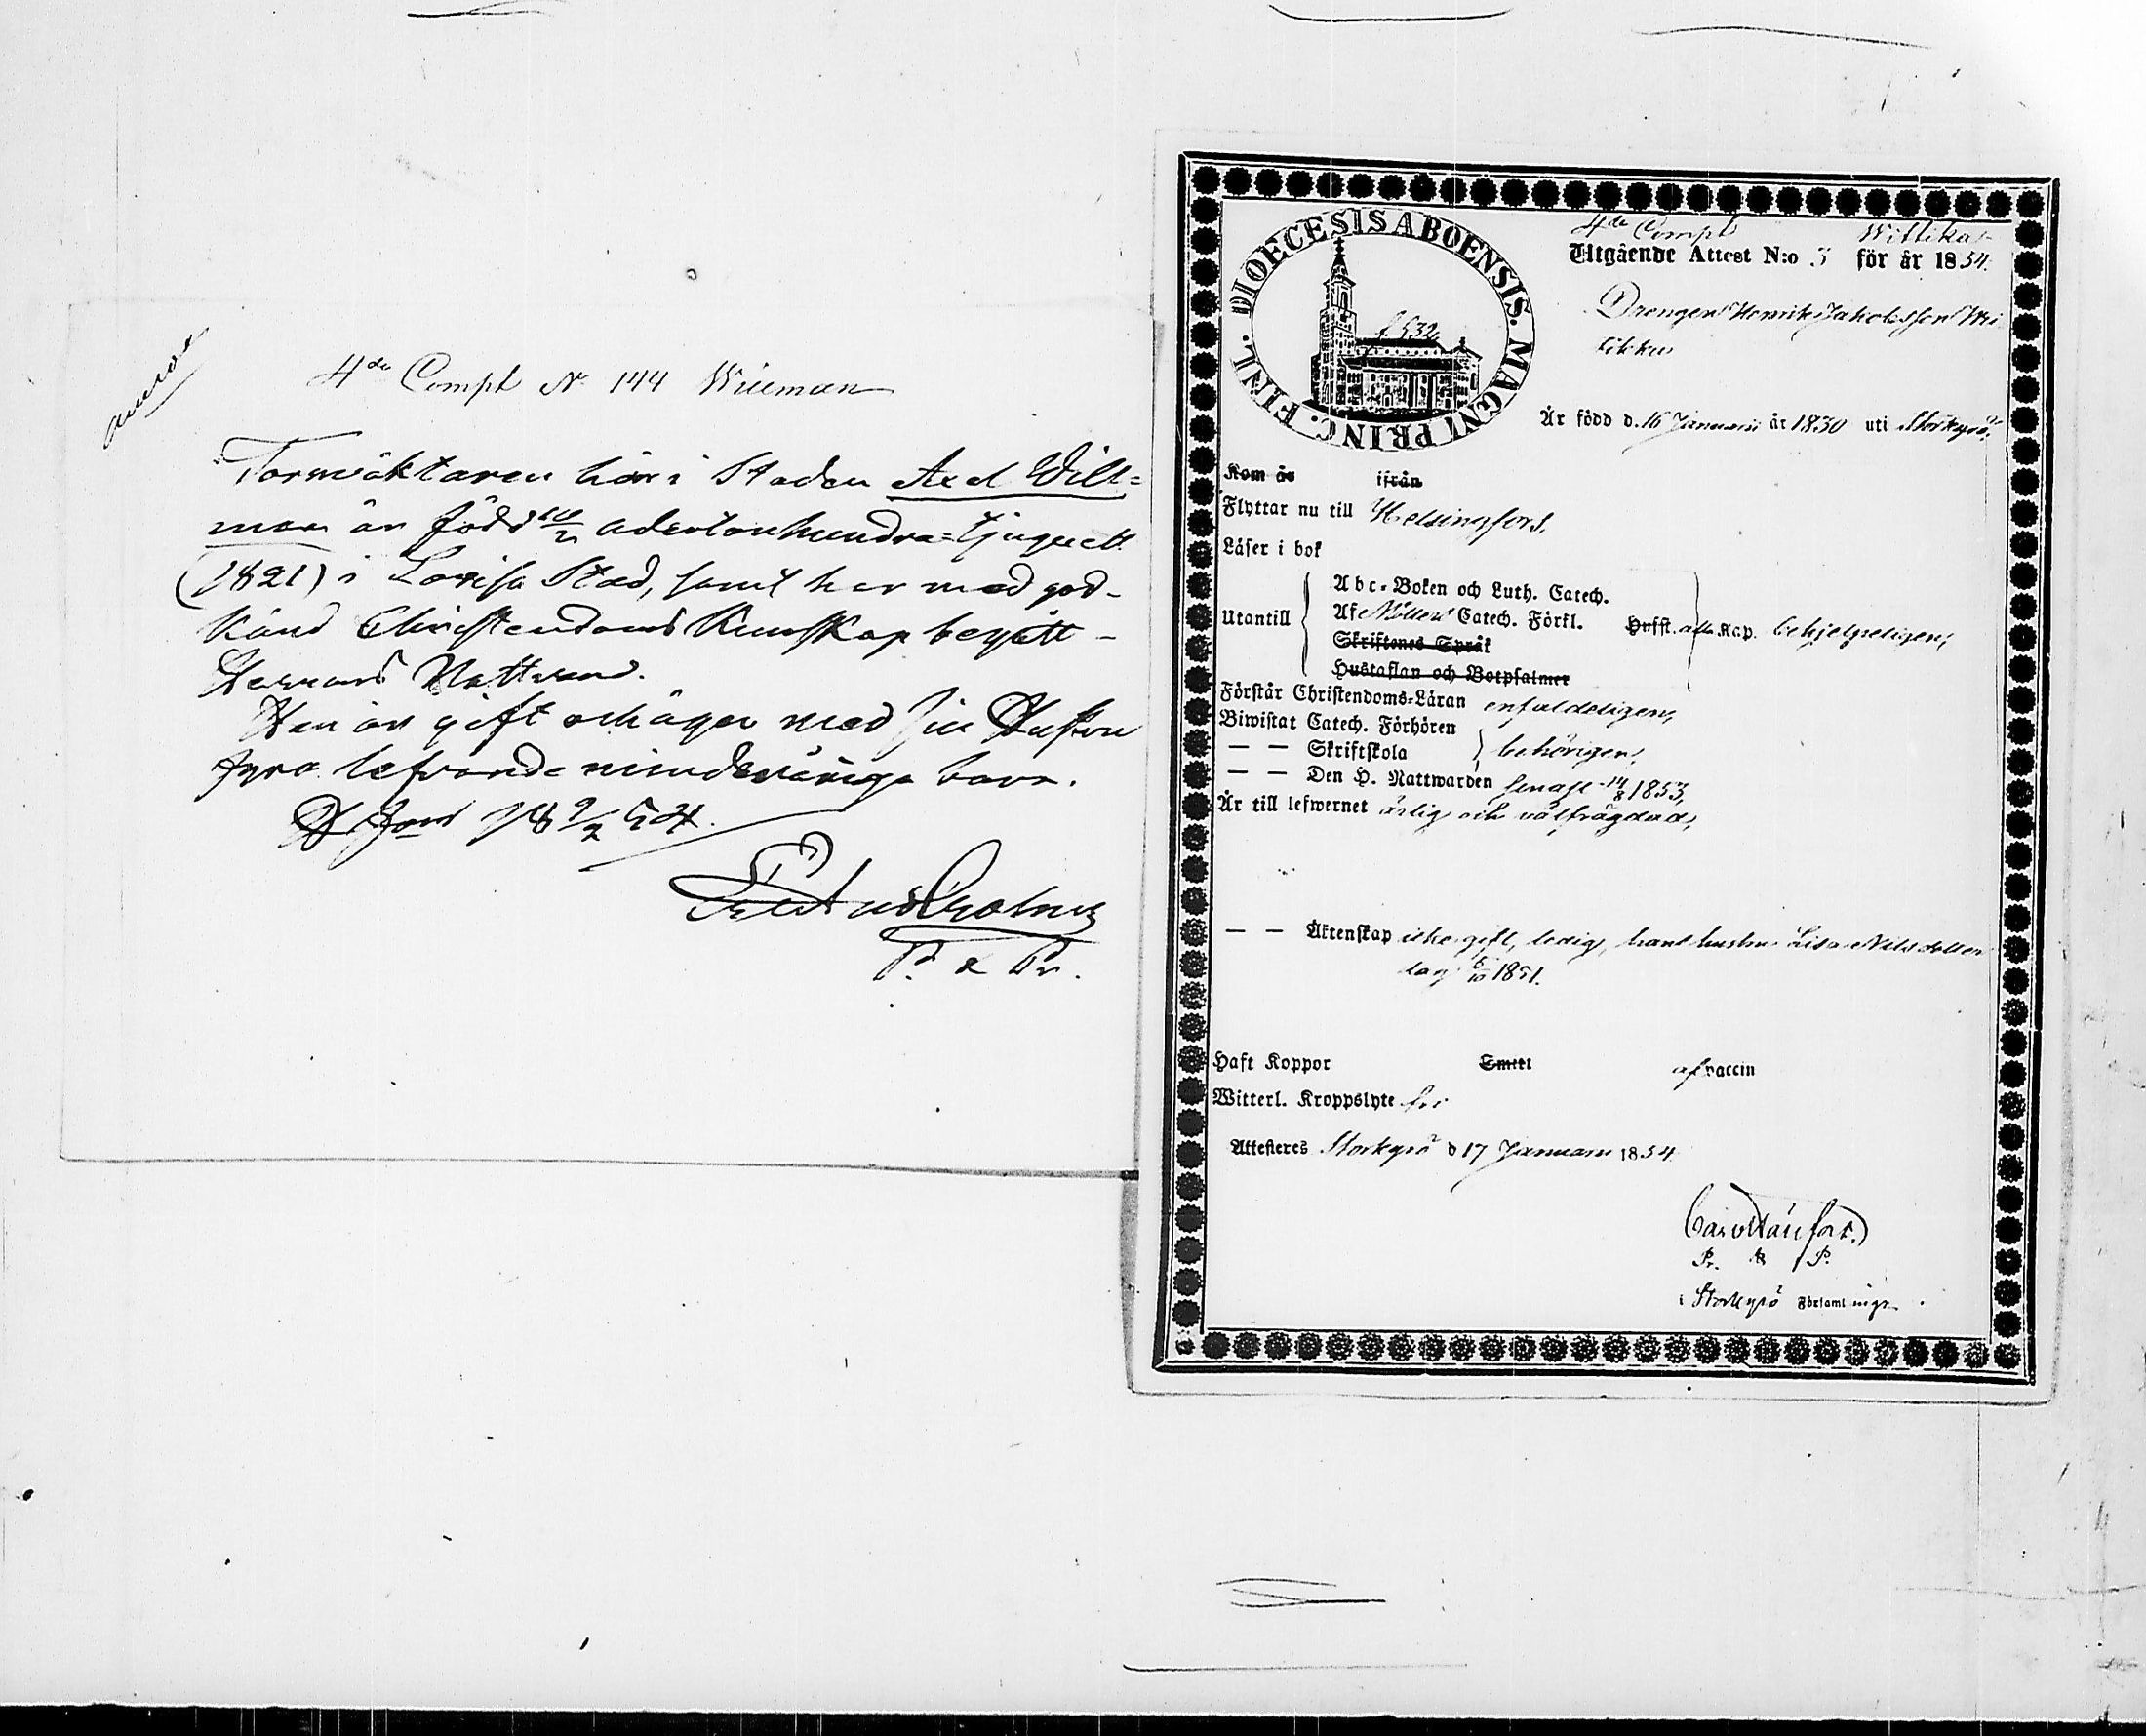 4de Comp N 144 Willman
Tornväktaren här i Staden Axel Will=
man är född 10/2 adertonhundra=tjuguett
(1821) i Lovisa Stad, samt har med god-
känd Christendoms Kunskap begått
Herrans Nattvard.
Han är gift och äger med sin Hustru
fyra lefvande minderåriga barn.
H:fors 18 9/2 54.
P. & Pr.
DIOECESIS ABOENSIS. MAGNI PRINC. FINL.
f. 532
4de Comp Wittikas
Utgående Attest N:o 3 för år 1854.
Drengen Henrik Jakobsson Wi
tikka
Är född d. 16 Januari år 1830 uti Storkyro.
Kom år ifrån
Flyttar nu till Helsingfors.
Läser i bok
Utantill
Abc-Boken och Luth. Catech.
Af Möllers Catech. Förkl. Husst. alla Kap. behjelpeligen,
Skriftenes Språk
Hustaflan och Botpsalmer
Förstår Christendoms-Läran enfaldeligen,
Biwistat Catech. Förhören
— — Skriftskola behörigen,
— — Den H. Nattwarden senast 14/8 1853,
Är till lefwernet ärlig och välfrägdad,
— — Äktenskap icke gift, ledig, hans hustru Lisa Nilsdotter
dog 6/10 1851.
Haft Koppor Smitt af vaccin
Witterl. Kroppslyte fri
Attesteres Storkyro d 17 Januari 1854
Pr. & P.
i Storkyro Församlings